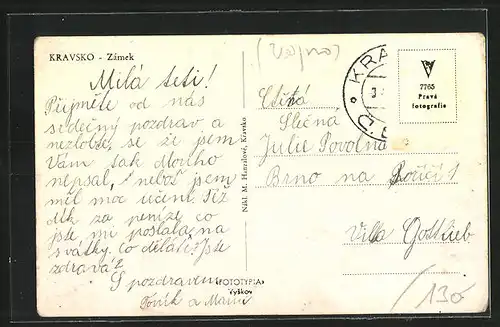 KRAVSKO - Zámek
(Vojna)
Milá teti!
Přijměte od nás
srdečný pozdrav a
nezlobte, se že jsem
Vám tak dlouho
nepsal, neboť jsem
měl moc učení. Též
dík za peníze co
jste mi poslala na
svátky. Co děláte? Jste
zdravá?
S pozdravem
a Mařa
Nákl. M. Hanzalové, Kravsko
FOTOTYPIA
Vyškov
KRA
7765
Pravá
fotografie
Ctěná
Slečna
Julie Povolná
Brno na Poříčí 1
Villa Gottlieb
130